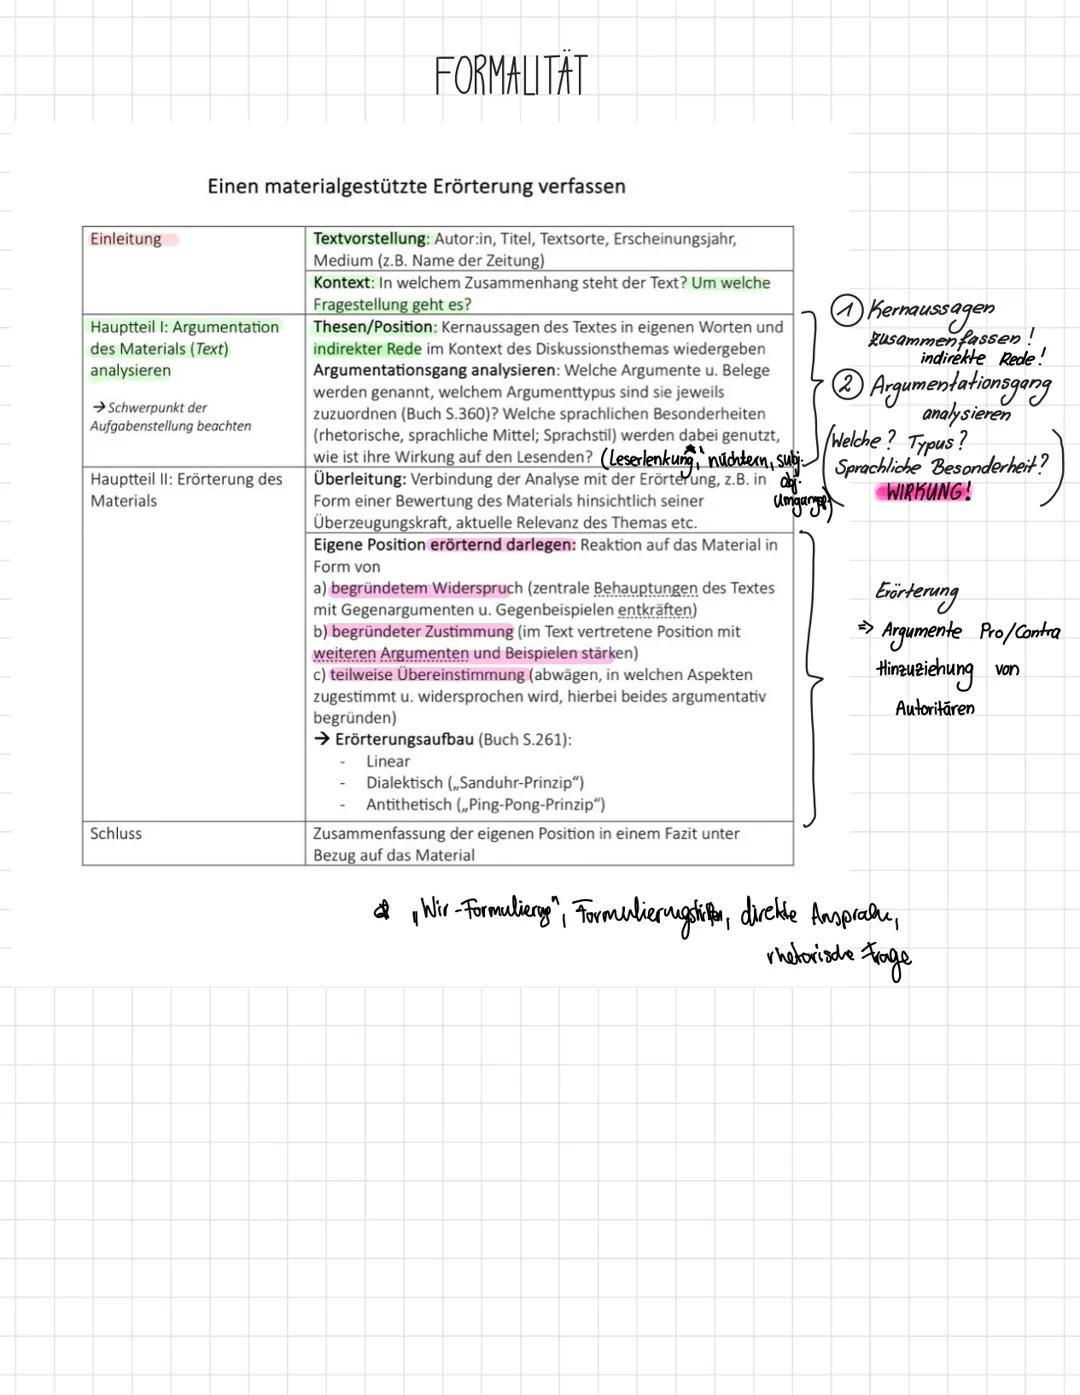 FORMALITÄT
Einen materialgestützte Erörterung verfassen
Einleitung
Textvorstellung: Autor:in, Titel, Textsorte, Erscheinungsjahr,
Medium (z.B. Name der Zeitung)
Kontext: In welchem Zusammenhang steht der Text? Um welche
Fragestellung geht es?
Hauptteil I: Argumentation
des Materials (Text)
analysieren
→ Schwerpunkt der
Aufgabenstellung beachten
Thesen/Position: Kernaussagen des Textes in eigenen Worten und
indirekter Rede im Kontext des Diskussionsthemas wiedergeben
Argumentationsgang analysieren: Welche Argumente u. Belege
werden genannt, welchem Argumenttypus sind sie jeweils
zuzuordnen (Buch S.360)? Welche sprachlichen Besonderheiten
(rhetorische, sprachliche Mittel; Sprachstil) werden dabei genutzt,
wie ist ihre Wirkung auf den Lesenden?
(Leserlenkung, nüchtern, subj.
obj.
① Kernaussagen
zusammenfassen!
indirekte Rede!
② Argumentationsgang
analysieren
(Welche? Typus?
Sprachliche Besonderheit?
WIRKUNG!)
Hauptteil II: Erörterung des
Materials
Überleitung: Verbindung der Analyse mit der Erörterung, z.B. in
Form einer Bewertung des Materials hinsichtlich seiner
Überzeugungskraft, aktuelle Relevanz des Themas etc.
Eigene Position erörternd darlegen: Reaktion auf das Material in
Form von
a) begründetem Widerspruch (zentrale Behauptungen des Textes
mit Gegenargumenten u. Gegenbeispielen entkräften)
b) begründeter Zustimmung (im Text vertretene Position mit
weiteren Argumenten und Beispielen stärken)
c) teilweise Übereinstimmung (abwägen, in welchen Aspekten
zugestimmt u. widersprochen wird, hierbei beides argumentativ
begründen)
→ Erörterungsaufbau (Buch S.261):
- Linear
- Dialektisch („Sanduhr-Prinzip“)
- Antithetisch („Ping-Pong-Prinzip“)
Erörterung
⇒ Argumente Pro/Contra
Hinzuziehung von
Autoritären
Schluss
Zusammenfassung der eigenen Position in einem Fazit unter
Bezug auf das Material
direkte Ansprache,
rhetorische Frage